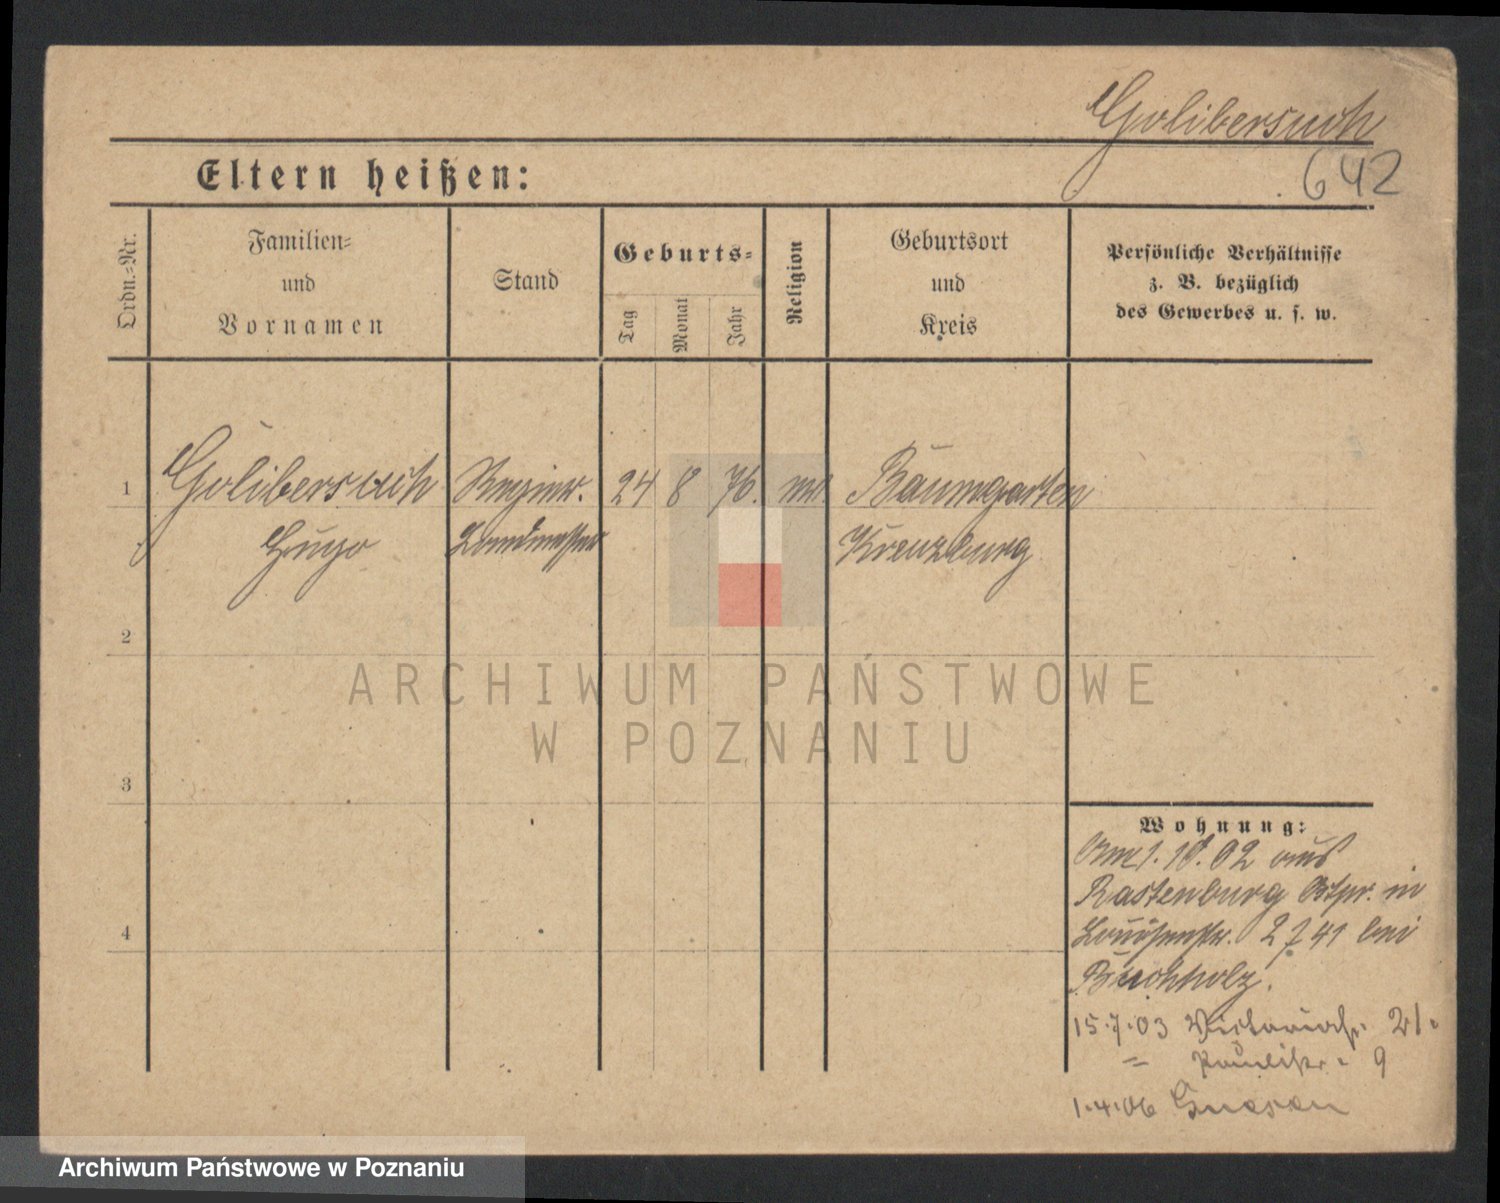 Golibersuch
642
Eltern heißen:
Ordn.=Nr.
Familien=
und
Vornamen
Stand
Geburts=
Tag
Monat
Jahr
Religion
Geburtsort
und
Kreis
Persönliche Verhältnisse
z. B. bezüglich
des Gewerbes u. s. w.
1
Golibersuch
24 8 76.
Baumgarten
Hugo
Landmesser
Kreuzburg
2
3
4
ARCHIWUM PAŃSTWOWE
W POZNANIU
Wohnung:
Am 1. 10. 02 aus
Rastenburg Ostpr. in
Louisenstr. 41 bei
Buchholz.
15.7.03 Victoriastr. 21.
= Paulistr. 9
1.4.06 Gnesen
Archiwum Państwowe w Poznaniu